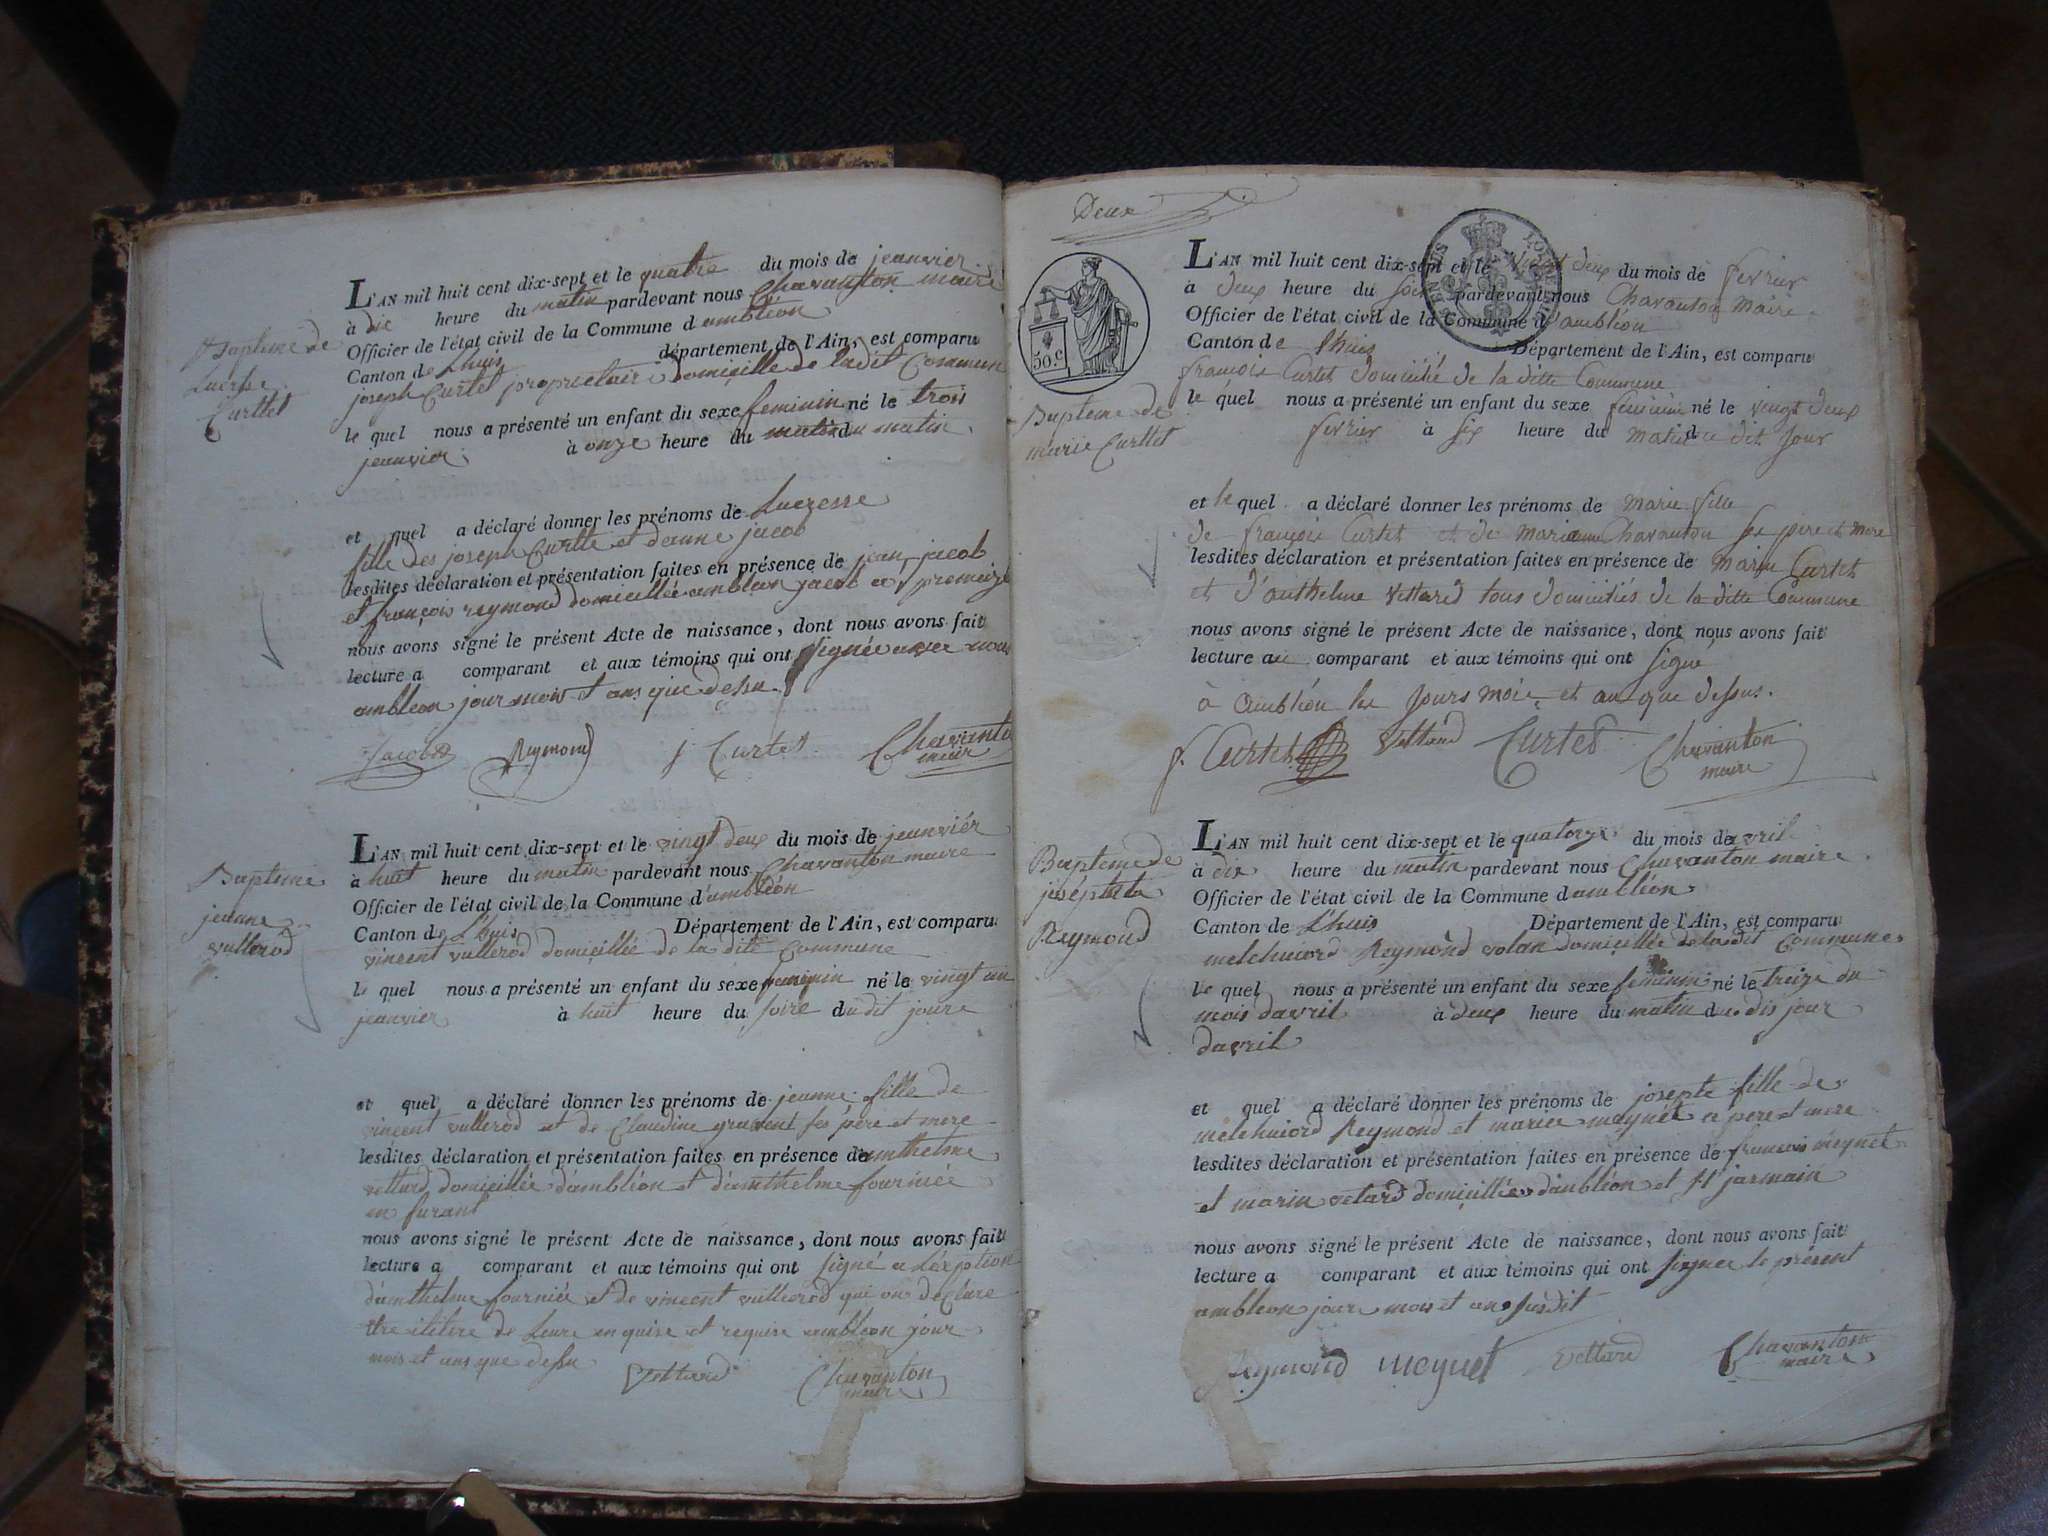 Baptême de
Lucrese
Curttet
L'AN mil huit cent dix-sept et le quatre du mois de jeanvier
à dix heure du matin pardevant nous Chavanton maire
Officier de l'état civil de la Commune d ambléon
Canton de Lhuis département de l'Ain, est comparu
joseph Curtet proprietaire domicille de ladit Commune
le quel nous a présenté un enfant du sexe feminin né le trois
jeanvier à onze heure du matin du matin
et quel a déclaré donner les prénoms de Lucresse
fille des joseph Curtte et deanne jacob
lesdites déclaration et présentation faites en présence de jean jacob
et françois reymond domicellée amblean jacob a premeizel
nous avons signé le présent Acte de naissance, dont nous avons fait
lecture a comparant et aux témoins qui ont signée avec nous
ambleon jour mois et ans que desu
Jacob Reymond j Curtet Chavanton
maire
Bapteme
jeanne
vullerod
L'AN mil huit cent dix-sept et le vingt deux du mois de jeanviér
à huit heure du matin pardevant nous Chavanton maire
Officier de l'état civil de la Commune d'ambléon
Canton de Lhuis Département de l'Ain, est comparu
vincent vullerod domicillié de la dite Commune
le quel nous a présenté un enfant du sexe feminin né le vingt un
jeanvier à huit heure du soire dudit joure
et quel a déclaré donner les prénoms de jeanne fille de
vincent vullerod et de Claudine gravent ses père et mere
lesdites déclaration et présentation faites en présence de anthelme
vettard domicillée d'ambléon et d'amthelme fourniée
en furant
nous avons signé le présent Acte de naissance, dont nous avons fait
lecture a comparant et aux témoins qui ont signé a l'éxption
d'amthelme fourniée et de vincent vullierod qui on déclare
être iletere de leure en quise et requise ambleon jour
mois et ans que dessu
Vettard Chavanton
maire
Deux
50.c
Bapteme de
marie Curttet
L'AN mil huit cent dix-sept et le vingt deux du mois de fevrier
à deux heure du soir pardevant nous Chavanton maire
Officier de l'état civil de la Commune d'ambléon
Canton de Lhuis Département de l'Ain, est comparu
françois Curtet domicilié de la ditte Commune
le quel nous a présenté un enfant du sexe feminin né le vingt deux
fevrier à six heure du matin du dit jour
et le quel a déclaré donner les prénoms de marie fille
de françois Curtet et de mariane Chavanton ses pere et mere
lesdites déclaration et présentation faites en présence de Marin Curtet
et d'anthelme Vettard tous domiciliés de la ditte Commune
nous avons signé le présent Acte de naissance, dont nous avons fait
lecture au comparant et aux témoins qui ont signé
à Ambléon les jours mois et an que dessus.
f. Curtet Vettard Curtet Chavanton
maire
Baptême de
joséphta
Reymond
L'AN mil huit cent dix-sept et le quatorze du mois de avril
à dix heure du matin pardevant nous Chavanton maire
Officier de l'état civil de la Commune d ambléon
Canton de Lhuis Département de l'Ain, est comparu
melchuiord Reymond volan domicillée de la dit Commune
le quel nous a présenté un enfant du sexe feminin né le treize du
mois davril à deux heure du matin du dis jour
davril
et quel a déclaré donner les prénoms de josepte fille de
melchuiord Reymond et mariee meynet a pere et mere
lesdites déclaration et présentation faites en présence de francois meynet
et marin vetard domicillées d'ambléon et St jarmain
nous avons signé le présent Acte de naissance, dont nous avons fait
lecture a comparant et aux témoins qui ont signee le présent
ambleon jour mois et ans susdit
Reymond meynet Vettard Chavanton
maire